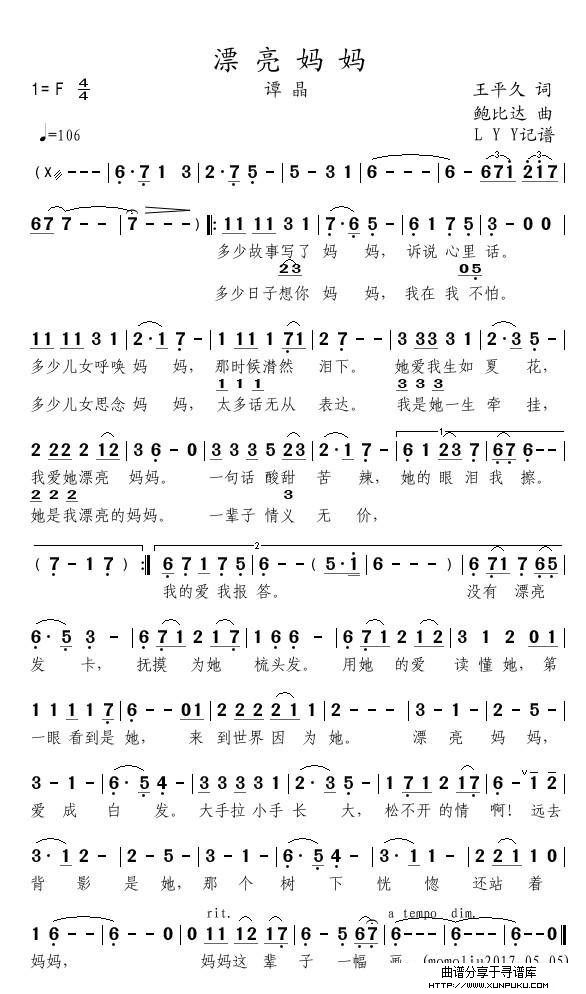 漂亮妈妈
1= F 4/4 谭晶 王平久 词
鲍比达 曲
♩=106 L Y Y记谱
(X - - - | 6·7 1 3 | 2·7 5 - | 5 - 3 1 | 6 - - - | 6 - 671 217 |
677 - - | 7 - - - ) ‖: 11 11 3 1 | 7·6 5 - | 6 1 7 5 | 3 - 0 0 |
多少故事写了 妈 妈， 诉说 心里 话。
23 05
多少日子想你 妈 妈， 我在 我 不怕。
11 11 3 1 | 2·1 7 - | 1 11 1 71 | 2 7 - - | 3 33 3 1 | 2·3 5 - |
多少儿女呼唤 妈 妈， 那时候潸然 泪下。 她爱我生如 夏 花，
1 1 1 3 3 3
多少儿女思念 妈 妈， 太多话无从 表达。 我是她一生 牵 挂，
2 22 2 12 | 3 6 - 0 | 3 33 5 23 | 2·1 7 - | 6 1 23 7 | 67 6 - - |
1.
我爱她漂亮 妈妈。 一句话 酸甜 苦 辣， 她的 眼 泪我 擦。
2 2 2 3
她是我漂亮的妈妈。 一辈子 情义 无 价，
2.
( 7 - 1 7 ) :‖ 6 7 1 7 5 | 6 - - ( 5·1 | 6 - - - ) | 6 71 7 65 |
我的爱 我报 答。 没有 漂亮
6·5 3 - | 6 71 2 17 | 1 6 6 - | 6 71 2 12 | 3 1 2 01 |
发 卡， 抚摸 为她 梳头发。 用她 的爱 读 懂她，第
1 1 1 1 7 | 6 - - 01 | 2 2 2 2 1 | 2 - - - | 3 - - 1 | 2 - 5 - |
一眼 看到是 她， 来 到世界 因 为她。 漂 亮 妈 妈，
3 - 1 - | 6·5 4 - | 3 33 3 1 | 2·3 5 - | 1 71 2 17 | 6 - 1 2 |
爱 成 白 发。 大手拉 小手 长 大， 松不开 的情 啊！ 远去
3·1 2 - | 2 - 2 - | 1 - 1 - | 6·5 4 - | 3 - 3 - | 2 2 1 1 0 |
背 影 是 她，那 个 树 下 恍 惚 还站 着
rit. a tempo dim.
1 6 - - | 6 - - 0 | 0 11 12 17 | 3 - 6 5 | 67 6 - - | 6 - - - |
妈妈， 妈妈这 辈 子 一幅 画。 (momoliu2017.05.05)
曲谱分享于寻谱库
HTTP://WWW.XUNPUKU.COM